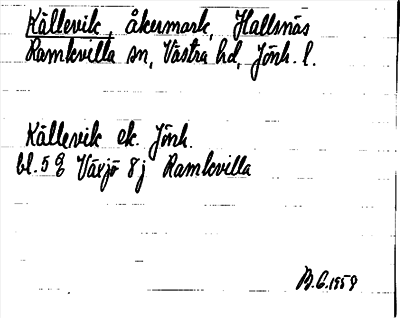 Källevik, åkermark, Hallsnäs
Ramkvilla sn, Västra hd, Jönk. l.
Källevik ek. Jönk.
bl. 58 Växjö 8j Ramkvilla
B.G. 1958